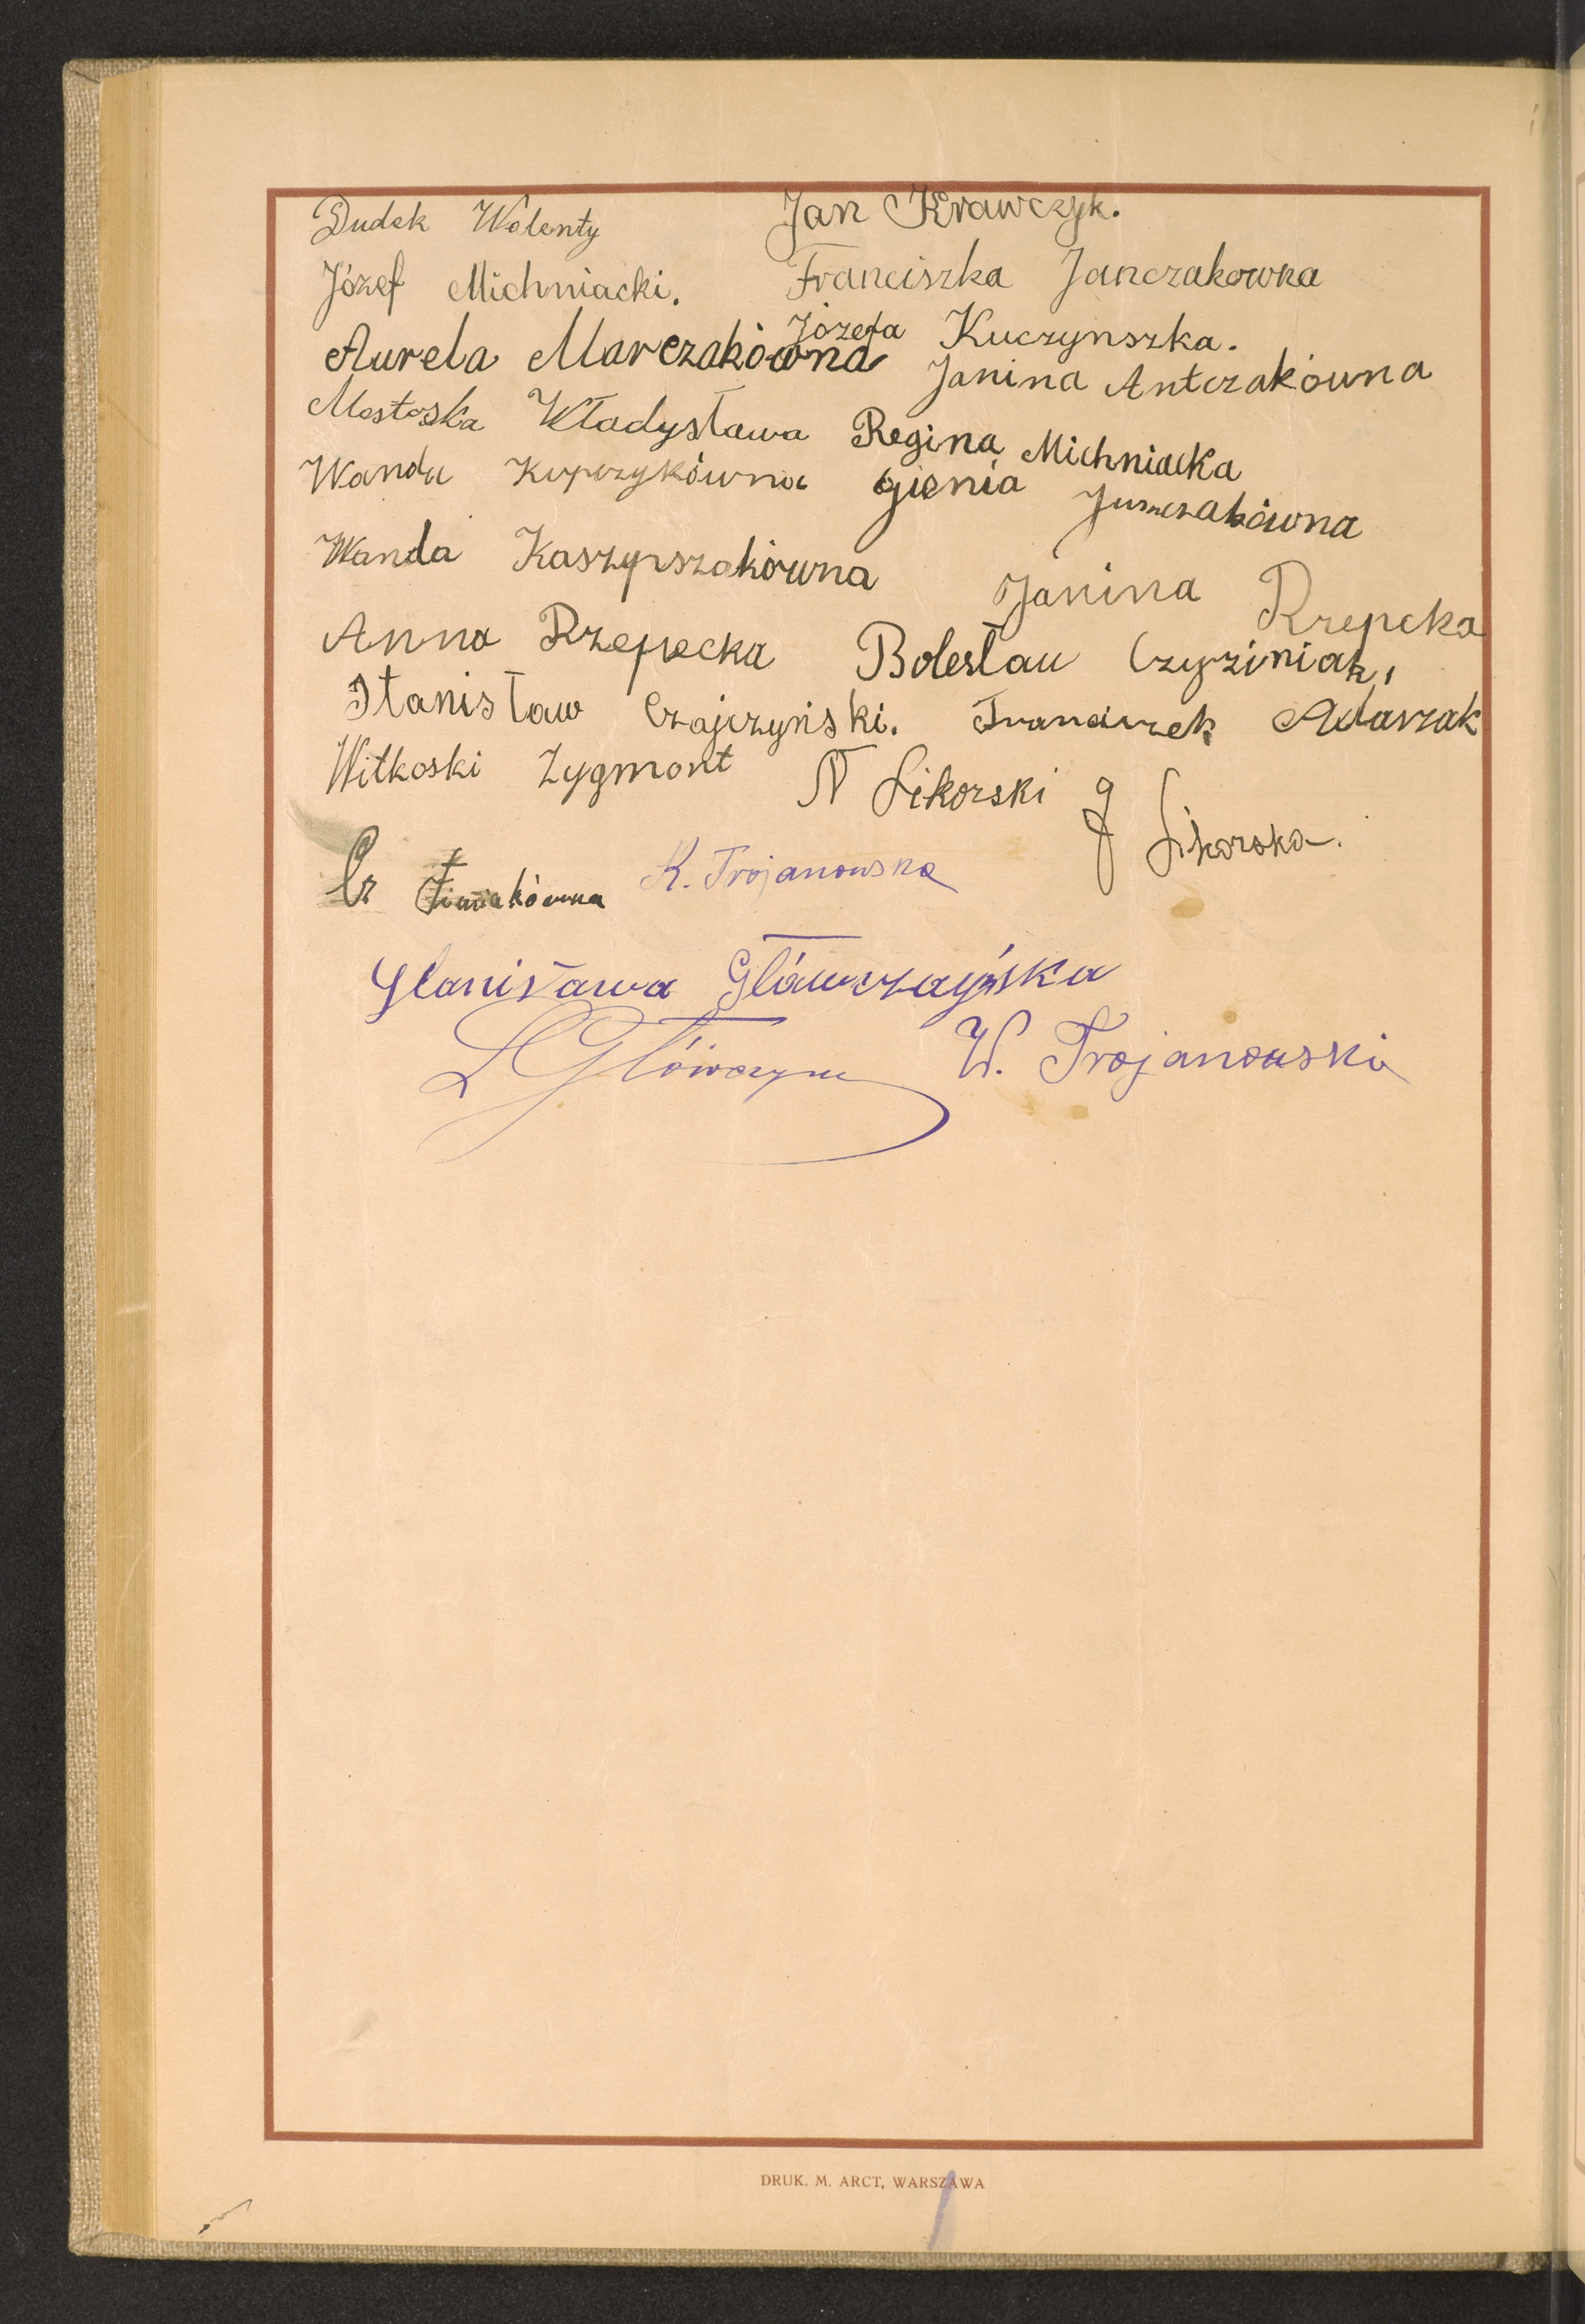 Dudek Walenty Jan Krawczyk.
Józef Michniacki. Franciszka Janczakowna
Józefa Kuczynszka.
Aurela Marczakówna Janina Antczakówna
Władysława Regina Michniacka
Wanda Kupczykówna Gienia
Wanda Kaszynszakówna Janina Rzepcka
Anna Rzepecka Bolesław Czyżiniak,
Stanisław Czajczyński. Franciszek Adaszak
Witkoski Zygmont N Sikorski J Sikorska.
Cz K. Trojanowska
Stanisława
L W. Trojanowski
DRUK. M. ARCT, WARSZAWA